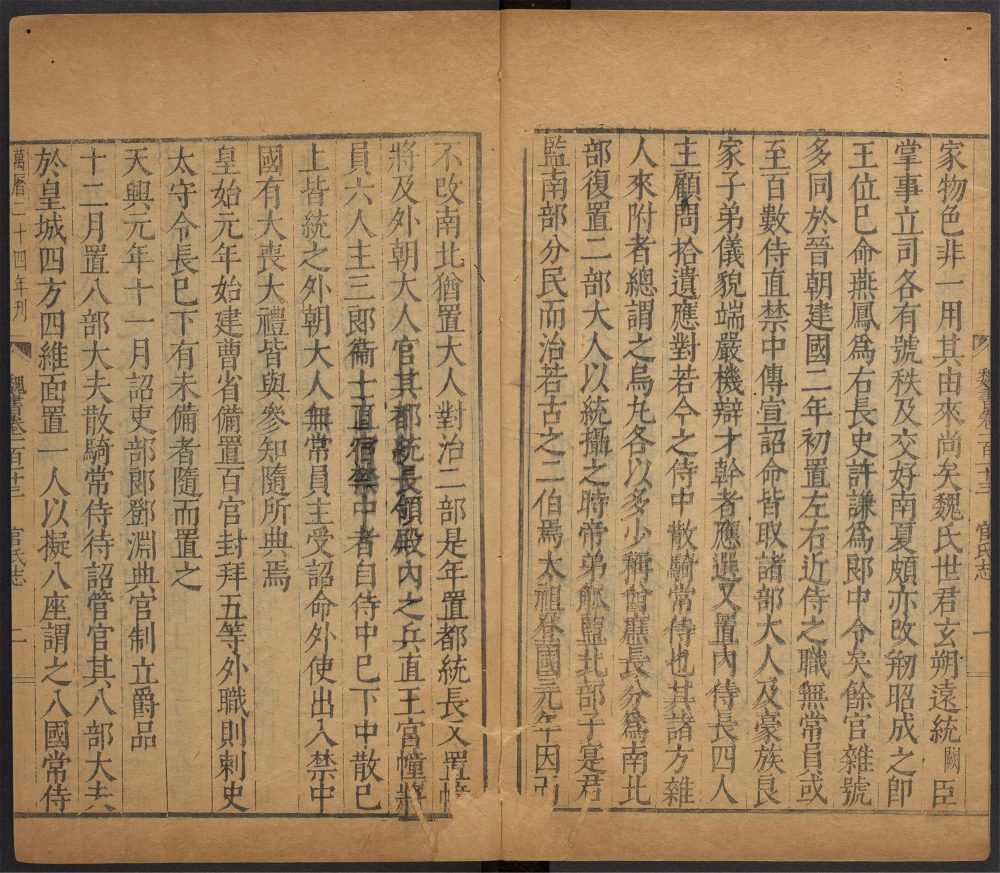 家物色非一用其由來尚矣魏氏世君玄朔遠統闕臣
掌事立司各有號秩及交好南夏頗亦改刱昭成之卽
王位已命燕鳳爲右長史許謙爲郎中令矣餘官雜號
多同於晉朝建國二年初置左右近侍之職無常員或
至百數侍直禁中傳宣詔命皆取諸部大人及豪族良
家子弟儀貌端嚴機辯才幹者應選又置內侍長四人
主顧問拾遺應對若今之侍中散騎常侍也其諸方雜
人來附者總謂之烏丸各以多少稱酋庶長分爲南北
部復置二部大人以統攝之時帝弟觚監北部子寔君
監南部分民而治若古之二伯焉太祖登國元年因而
魏書卷一百十三 官氏志 一
不改南北猶置大人對治二部是年置都統長又置幢
將及外朝大人官其都統長領殿內之兵直王宮幢將
員六人主三郎衞士直宿禁中者自侍中已下中散已
上皆統之外朝大人無常員主受詔命外使出入禁中
國有大喪大禮皆與參知隨所典焉
皇始元年始建曹省備置百官封拜五等外職則刺史
太守令長已下有未備者隨而置之
天興元年十一月詔吏部郎鄧淵典官制立爵品
十二月置八部大夫散騎常侍待詔管官其八部大夫
於皇城四方四維面置一人以擬八座謂之八國常侍
萬曆二十四年刊 魏書卷一百十三 官氏志 二